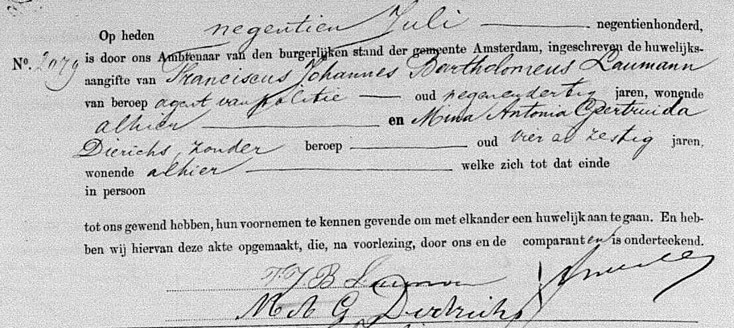 Op heden negentien Juli negentienhonderd,
No. 2079 is door ons Ambtenaar van den burgerlijken stand der gemeente Amsterdam, ingeschreven de huwelijks-
aangifte van Franciscus Johannes Bartholomeus Laumann
van beroep agent van politie oud negenendertig jaren, wonende
alhier en Mina Antonia Geertruida
Dierichs, zonder beroep oud vier en zestig jaren,
wonende alhier welke zich tot dat einde
in persoon
tot ons gewend hebben, hun voornemen te kennen gevende om met elkander een huwelijk aan te gaan. En heb-
ben wij hiervan deze akte opgemaakt, die, na voorlezing, door ons en de comparanten is onderteekend.
F. J. B Laumann
M A G Dierichs